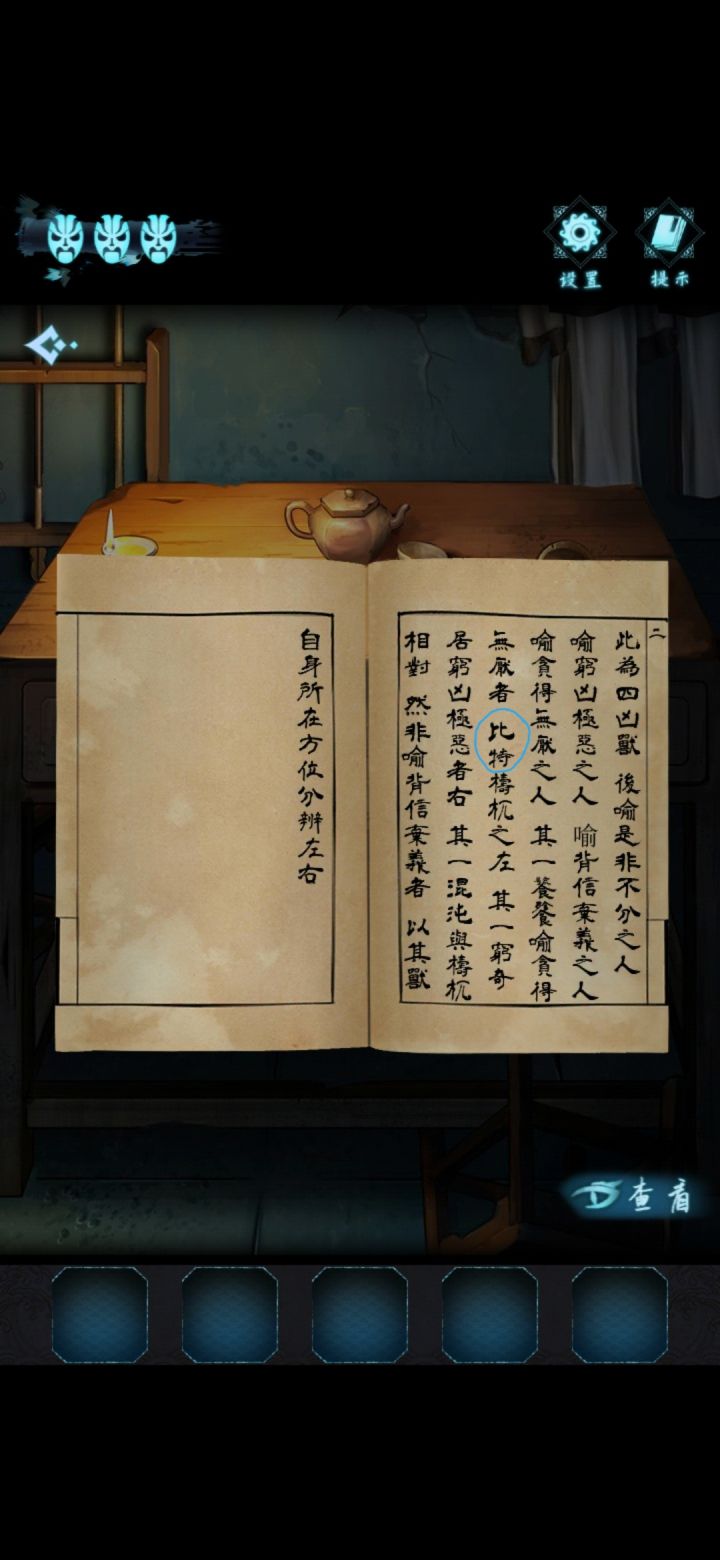 设置
提示
二
此為四凶獸 後喻是非不分之人
喻窮凶極惡之人 喻背信棄義之人
喻貪得無厭之人 其一饕餮喻貪得
無厭者 比特檮杌之左 其一窮奇
居窮凶極惡者右 其一混沌與檮杌
相對 然非喻背信棄義者 以其獸
自身所在方位分辨左右
查看